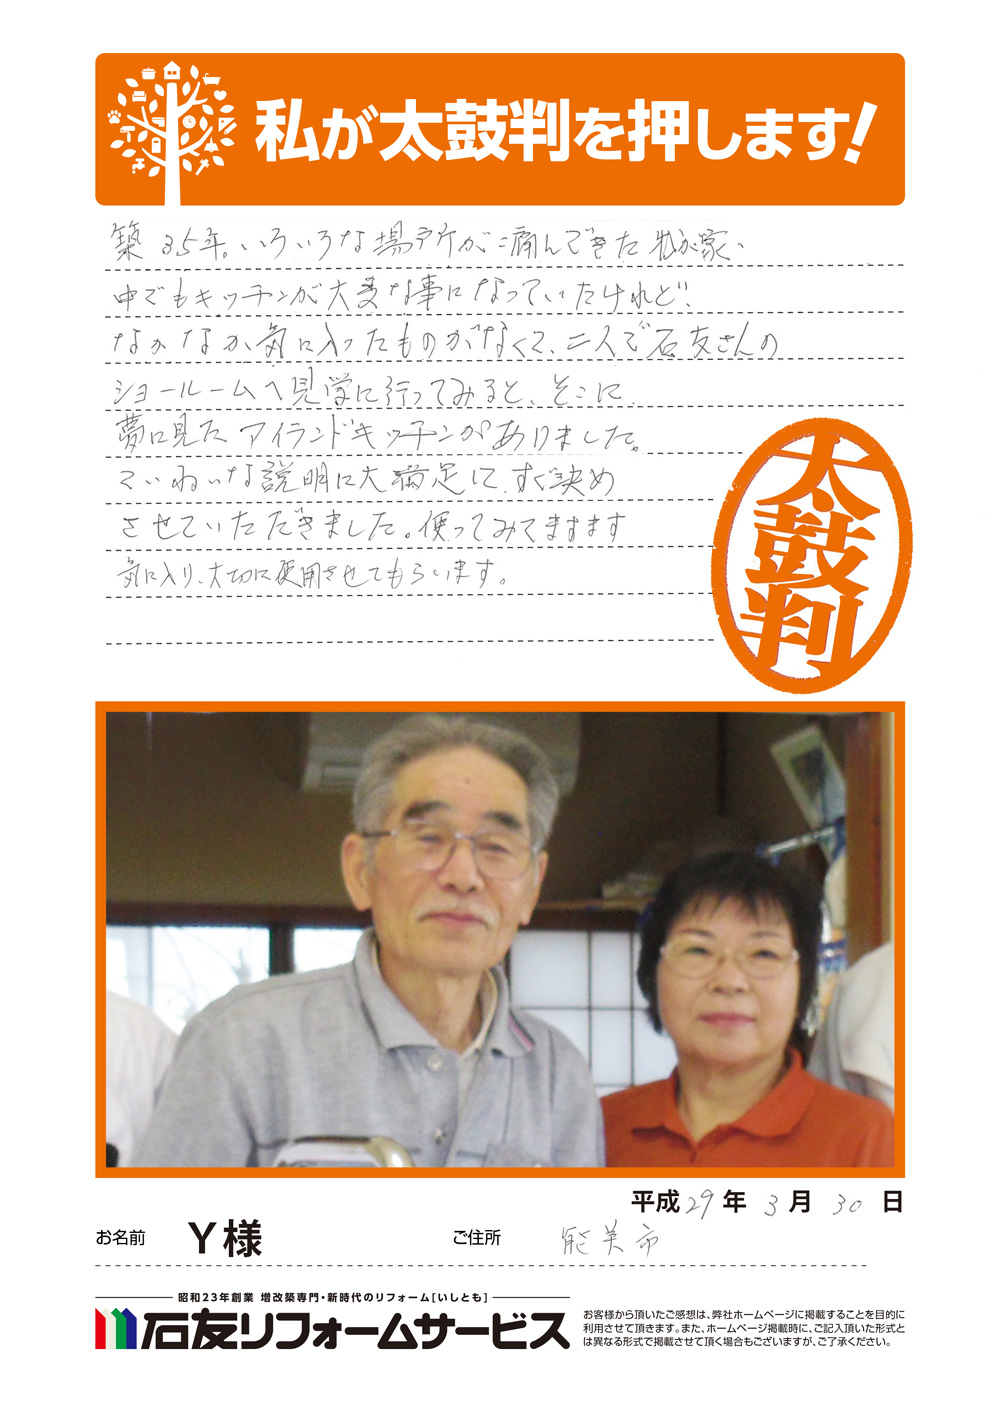 私が太鼓判を押します!
築35年。いろいろな場所が痛んできた我が家、
中でもキッチンが大変な事になっていたけれど、
なかなか気に入ったものがなくて、二人で石友さんの
ショールームへ見学に行ってみると、そこに
夢に見たアイランドキッチンがありました。
ていねいな説明に大満足して、すぐ決め
させていただきました。使ってみてますます
気に入り、大切に使用させてもらいます。
太鼓判
平成29年3月30日
お名前 Y様 ご住所 能美市
昭和23年創業 増改築専門・新時代のリフォーム[いしとも]
石友リフォームサービス
お客様から頂いたご感想は、弊社ホームページに掲載することを目的に
利用させて頂きます。また、ホームページ掲載時に、ご記入頂いた形式と
は異なる形式で掲載させて頂く場合もございますが、ご了承ください。